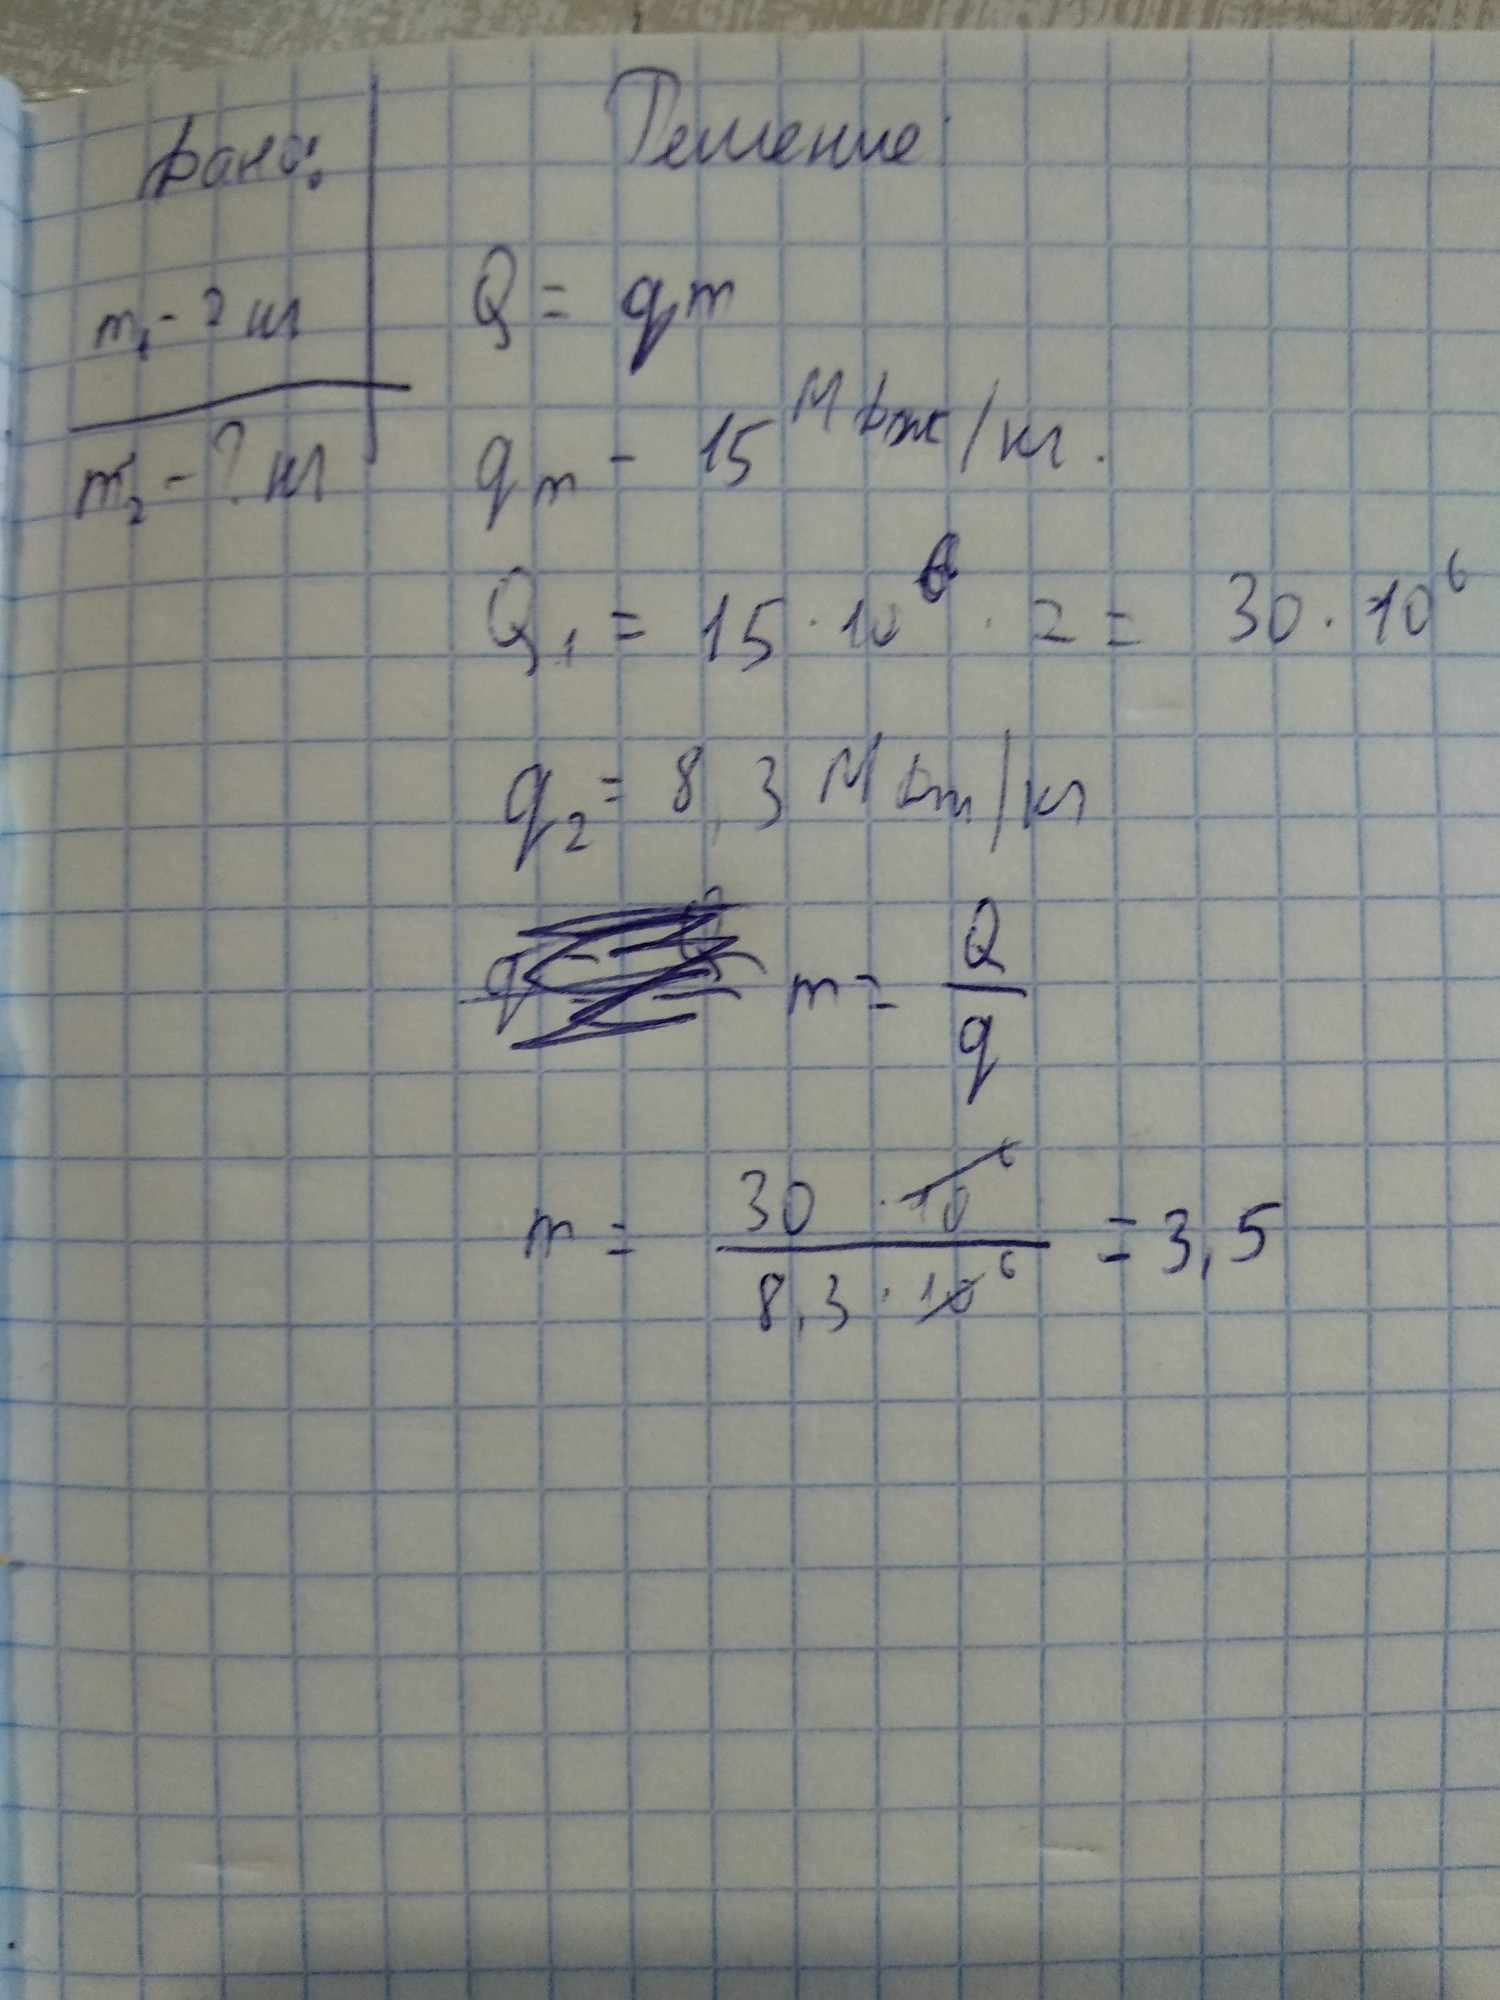 Дано:
m₁ - ? кг
m₂ - ? кг
Решение
Q = qm
qm - 15 МДж/кг.
Q₁ = 15 · 10⁶ · 2 = 30 · 10⁶
q₂ = 8,3 МДж/кг
m = Q/q
m = 30 · 10⁶ / 8,3 · 10⁶ = 3,5